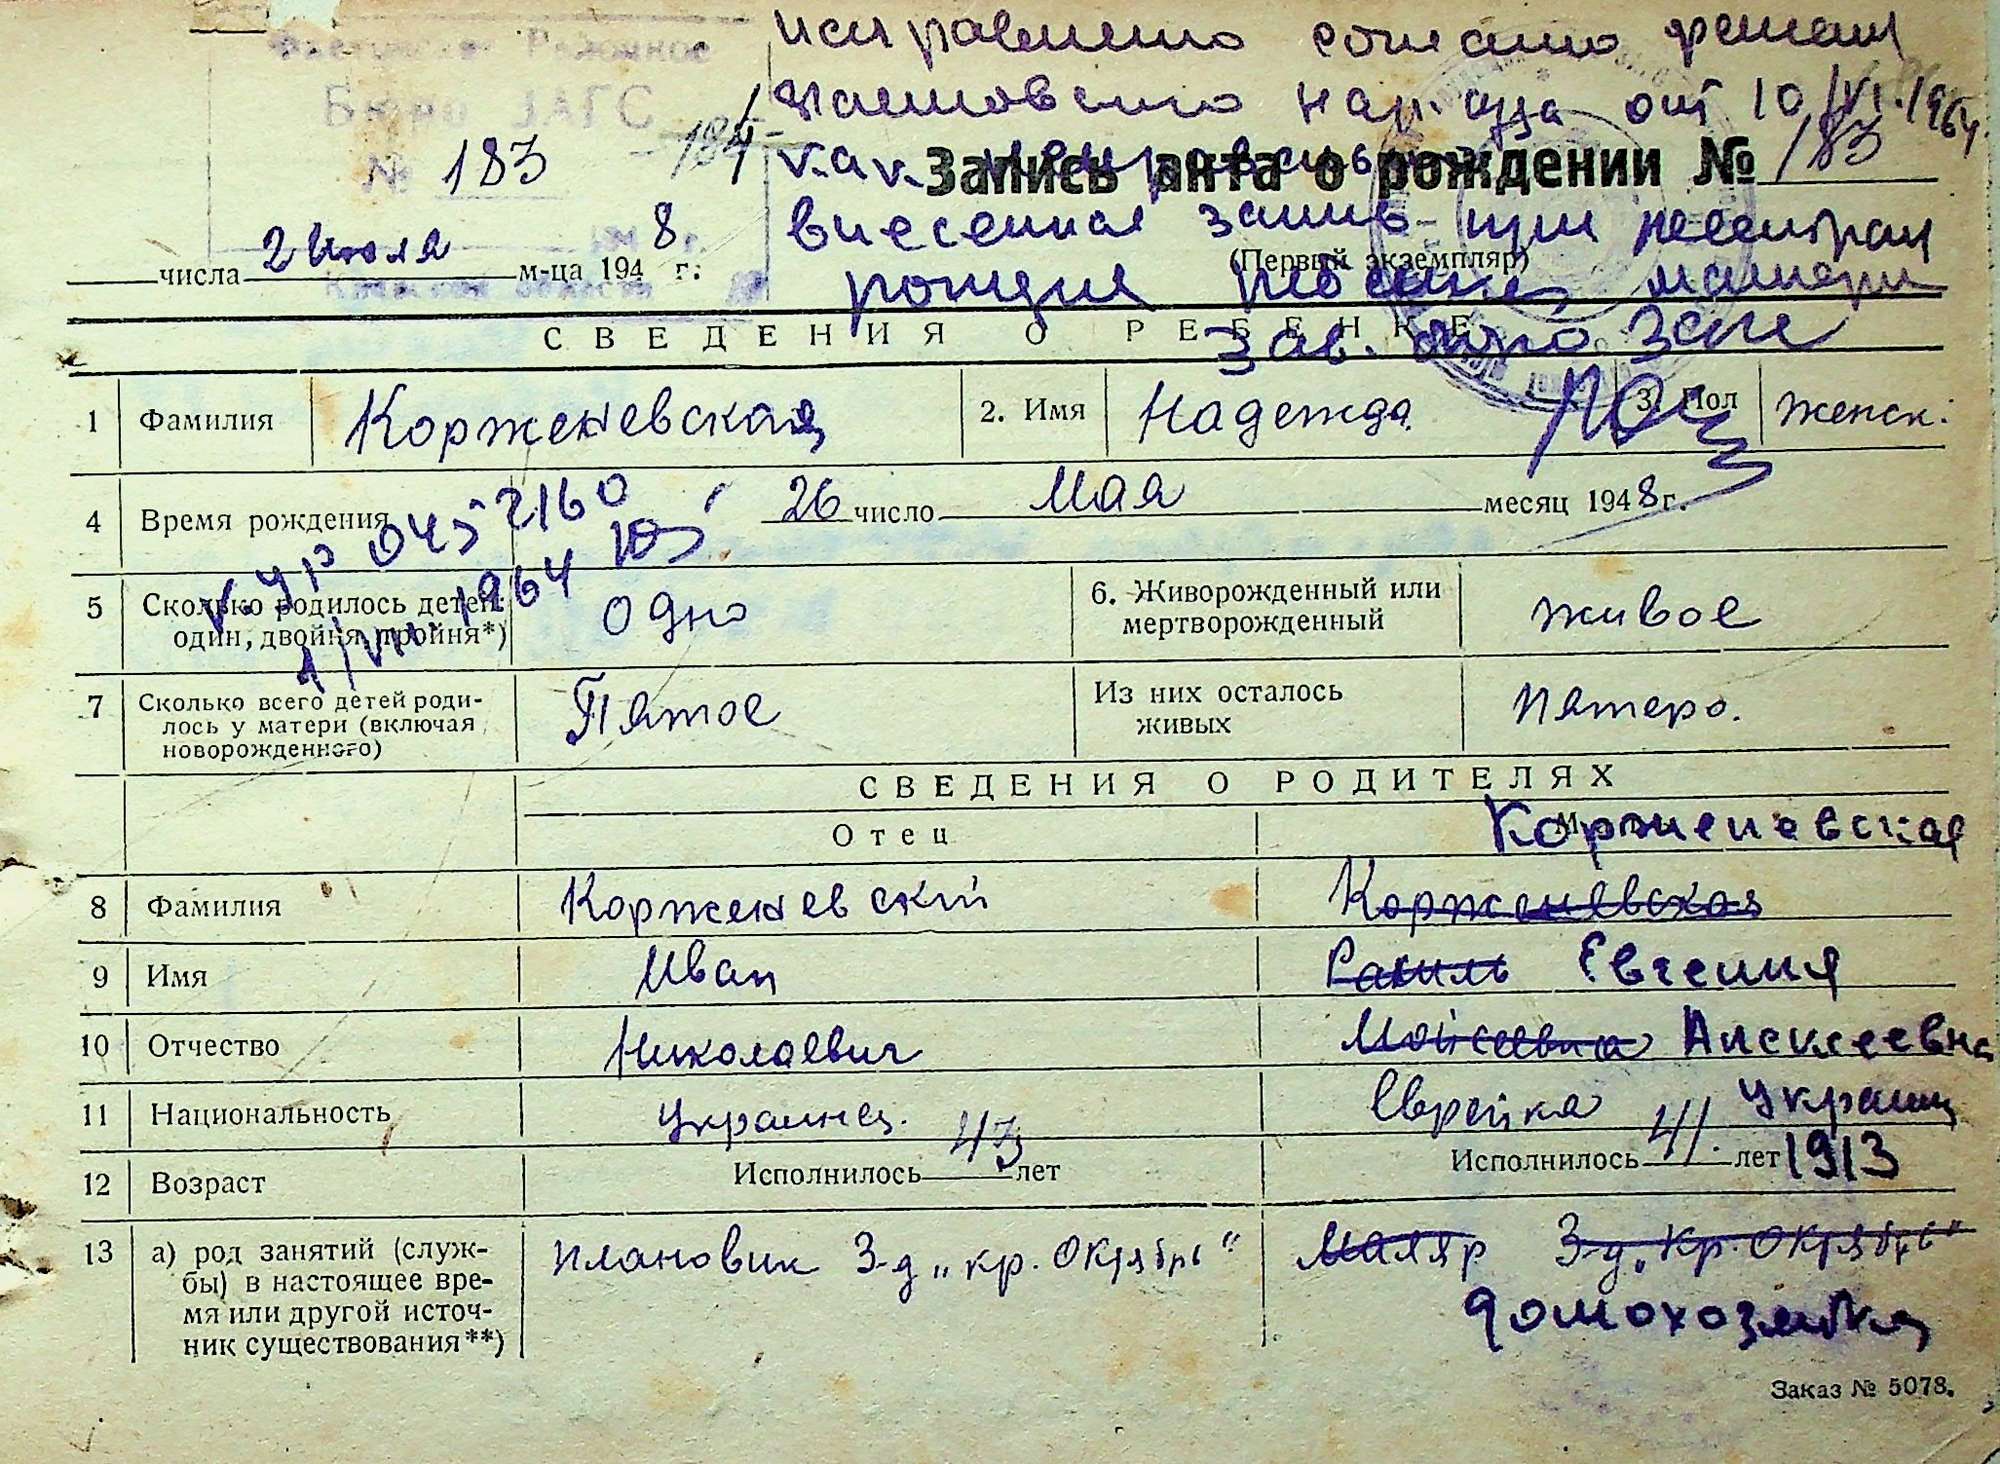 Районное
Бюро ЗАГС
№ 183 184
2 июля
числа м-ца 1948 г.
исправлено согласно решен
Фастовского нар. суда от 10/VI.1964
внесенная запись при регистрац
рождения ребенка матери
Зав. бюро Загс
Запись акта о рождении № 183
(Первый экземпляр)
СВЕДЕНИЯ О РЕБЕНКЕ
1 Фамилия Корженевская 2. Имя Надежда 3. Пол женск.
4 Время рождения 26 число Мая месяц 1948 г.
0452160
1964
5 Сколько родилось детей:
один, двойня, тройня*) Одно
6. Живорожденный или
мертворожденный живое
7 Сколько всего детей роди-
лось у матери (включая
новорожденного) Пятое
Из них осталось
живых Пятеро.
СВЕДЕНИЯ О РОДИТЕЛЯХ
Отец Корженевская
8 Фамилия Корженевский Корженевская
9 Имя Иван Рахиль Евгения
10 Отчество Николаевич Мойсеевна Алексеевна
11 Национальность украинец. Еврейка украин
12 Возраст Исполнилось 43 лет Исполнилось 41. лет 1913
13 а) род занятий (служ-
бы) в настоящее вре-
мя или другой источ-
ник существования**)
плановик З-д „Кр. Октябрь“ Маляр З-д „Кр. Октябрь“
домохозяйка
Заказ № 5078.